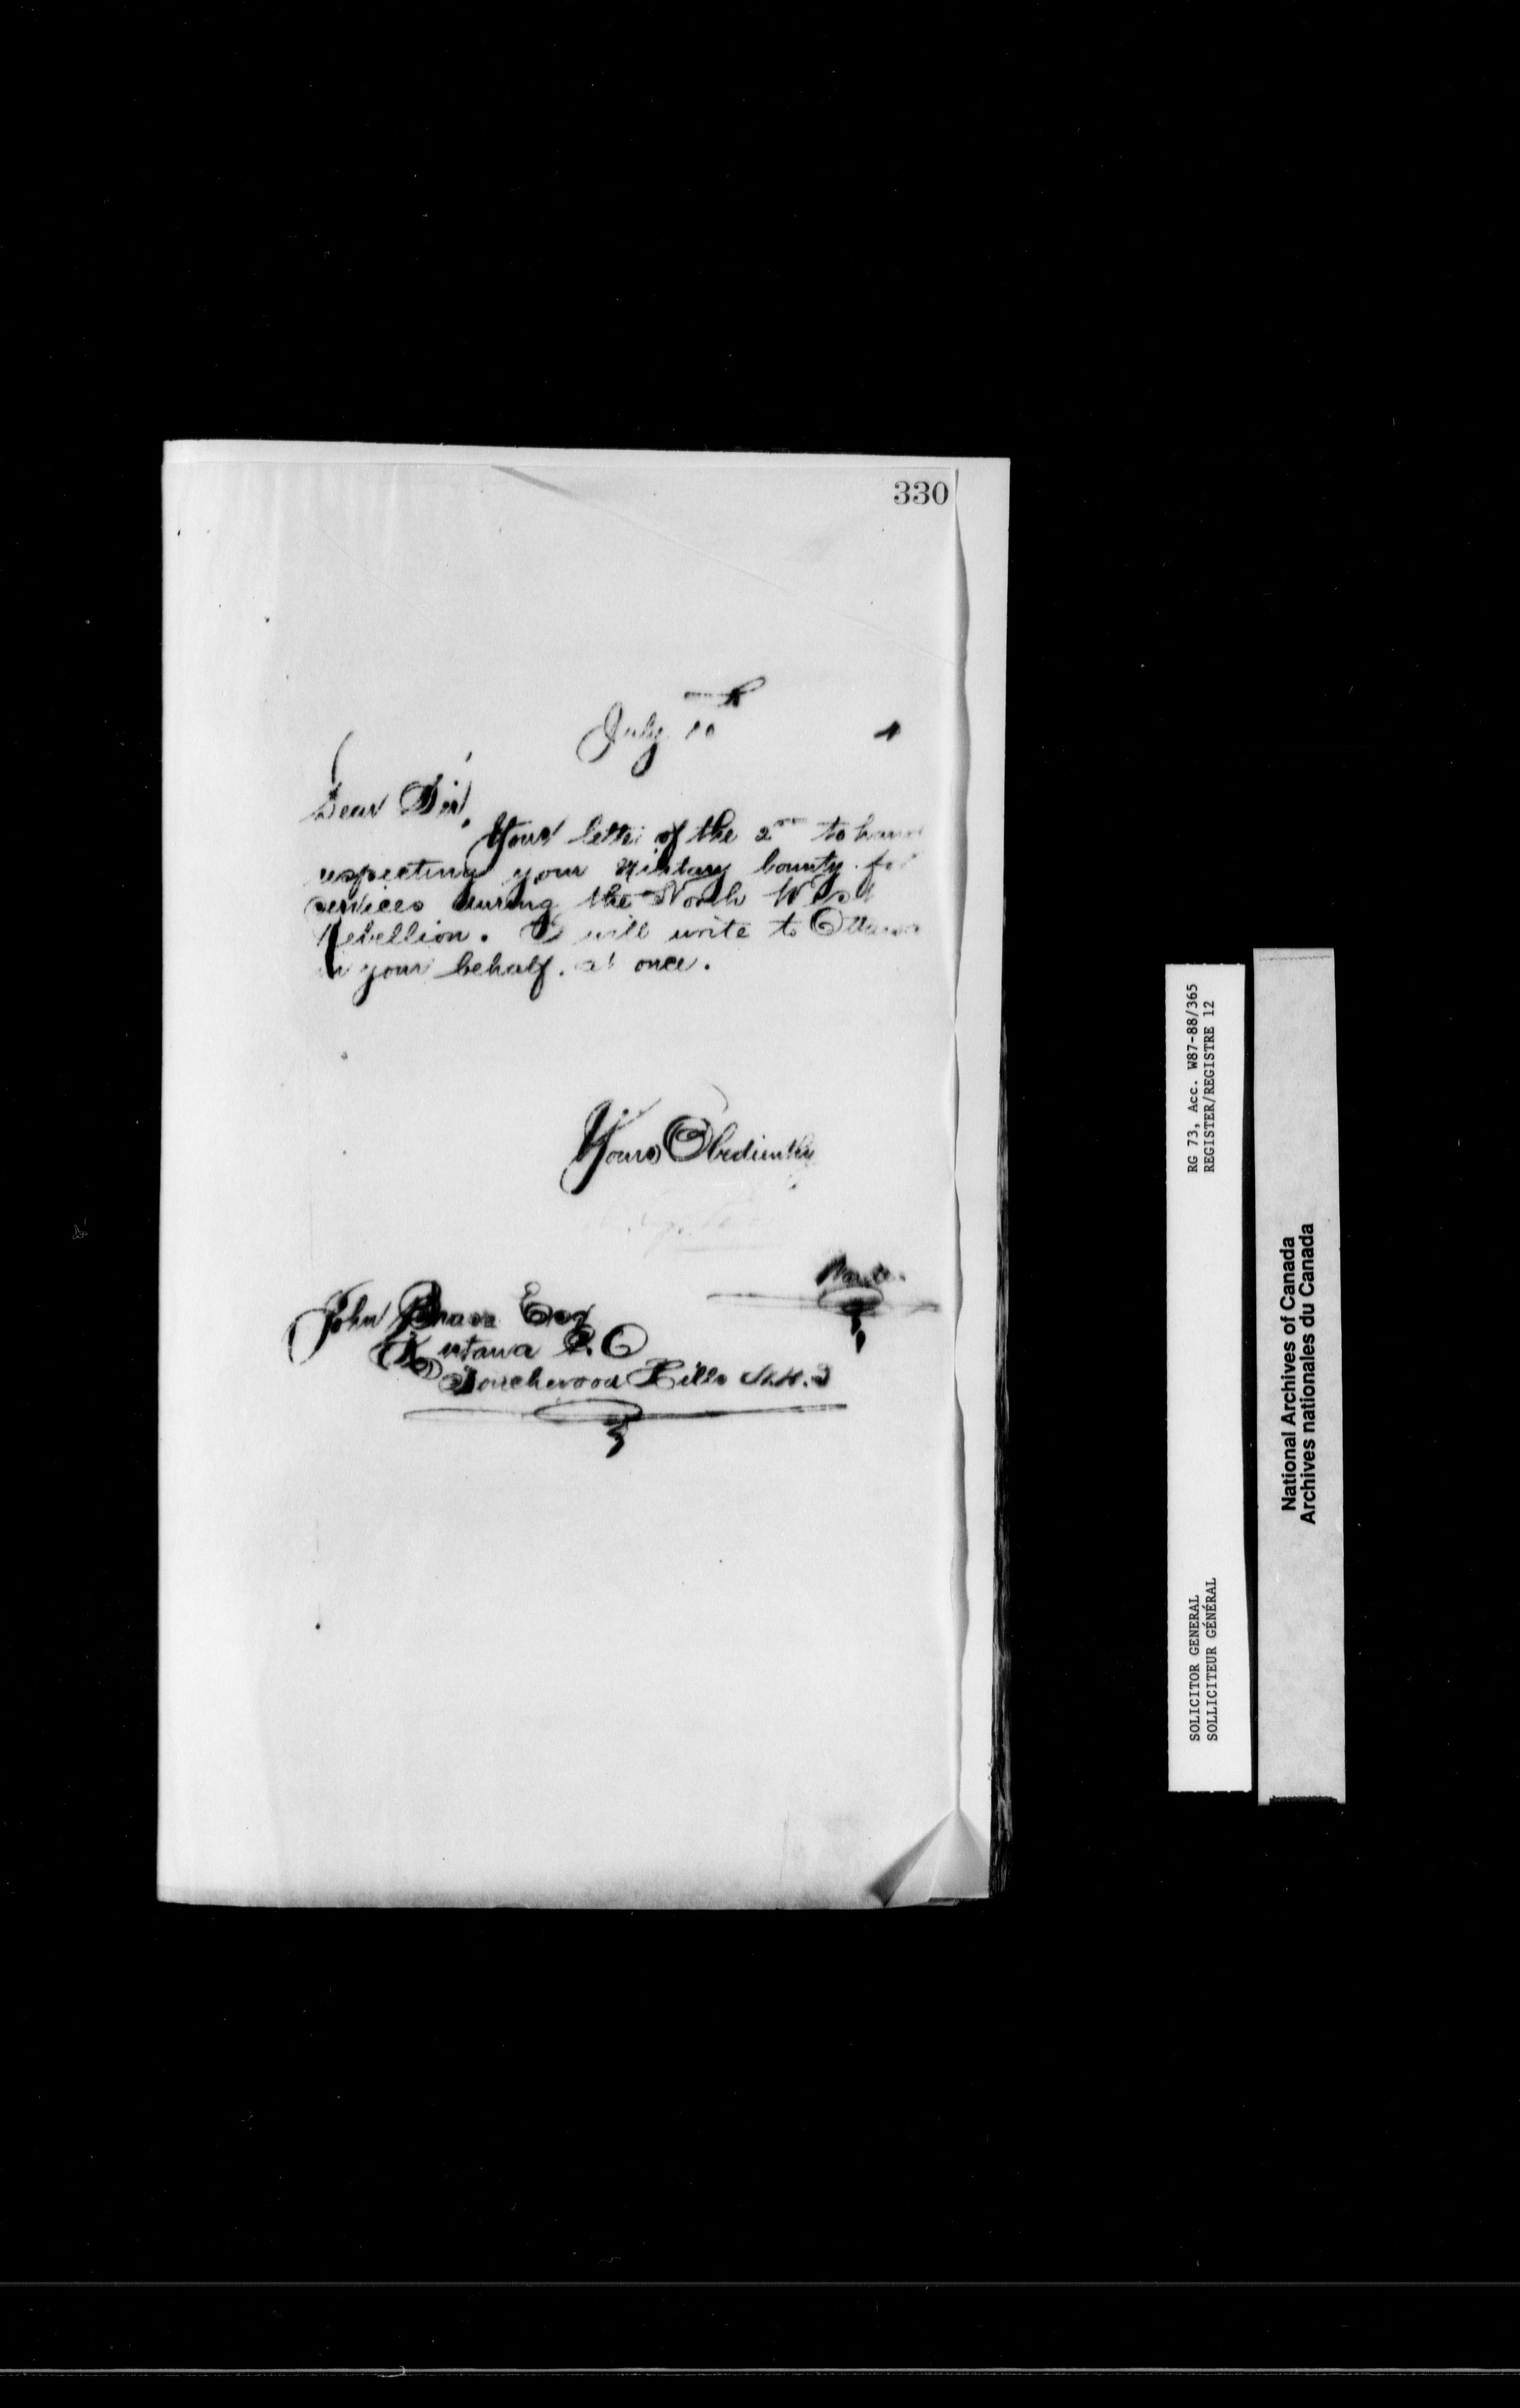 330
July 10th
1
Dear Sir,
Your letter of the 2nd to hand
respecting your Military bounty for
services during the North West
Rebellion. I will write to Ottawa
in your behalf. at once.
Yours Obediently
John Esq
Kutawa P.O
Touchwood Hills N.W.T
RG 73, Acc. W87-88/365
REGISTER/REGISTRE 12
SOLICITOR GENERAL
SOLLICITEUR GÉNÉRAL
National Archives of Canada
Archives nationales du Canada